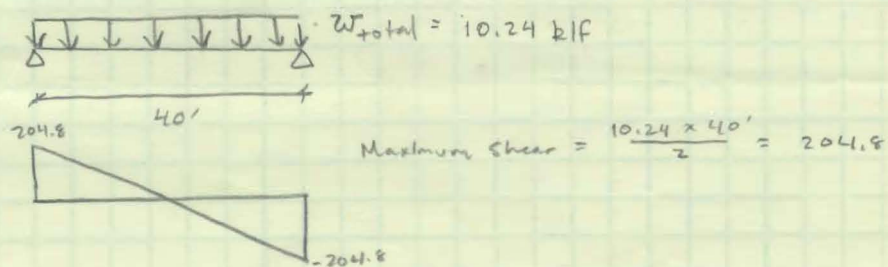 W total = 10.24 klf
40'
204.8
Maximum Shear = 10.24 x 40' / 2 = 204.8
-204.8